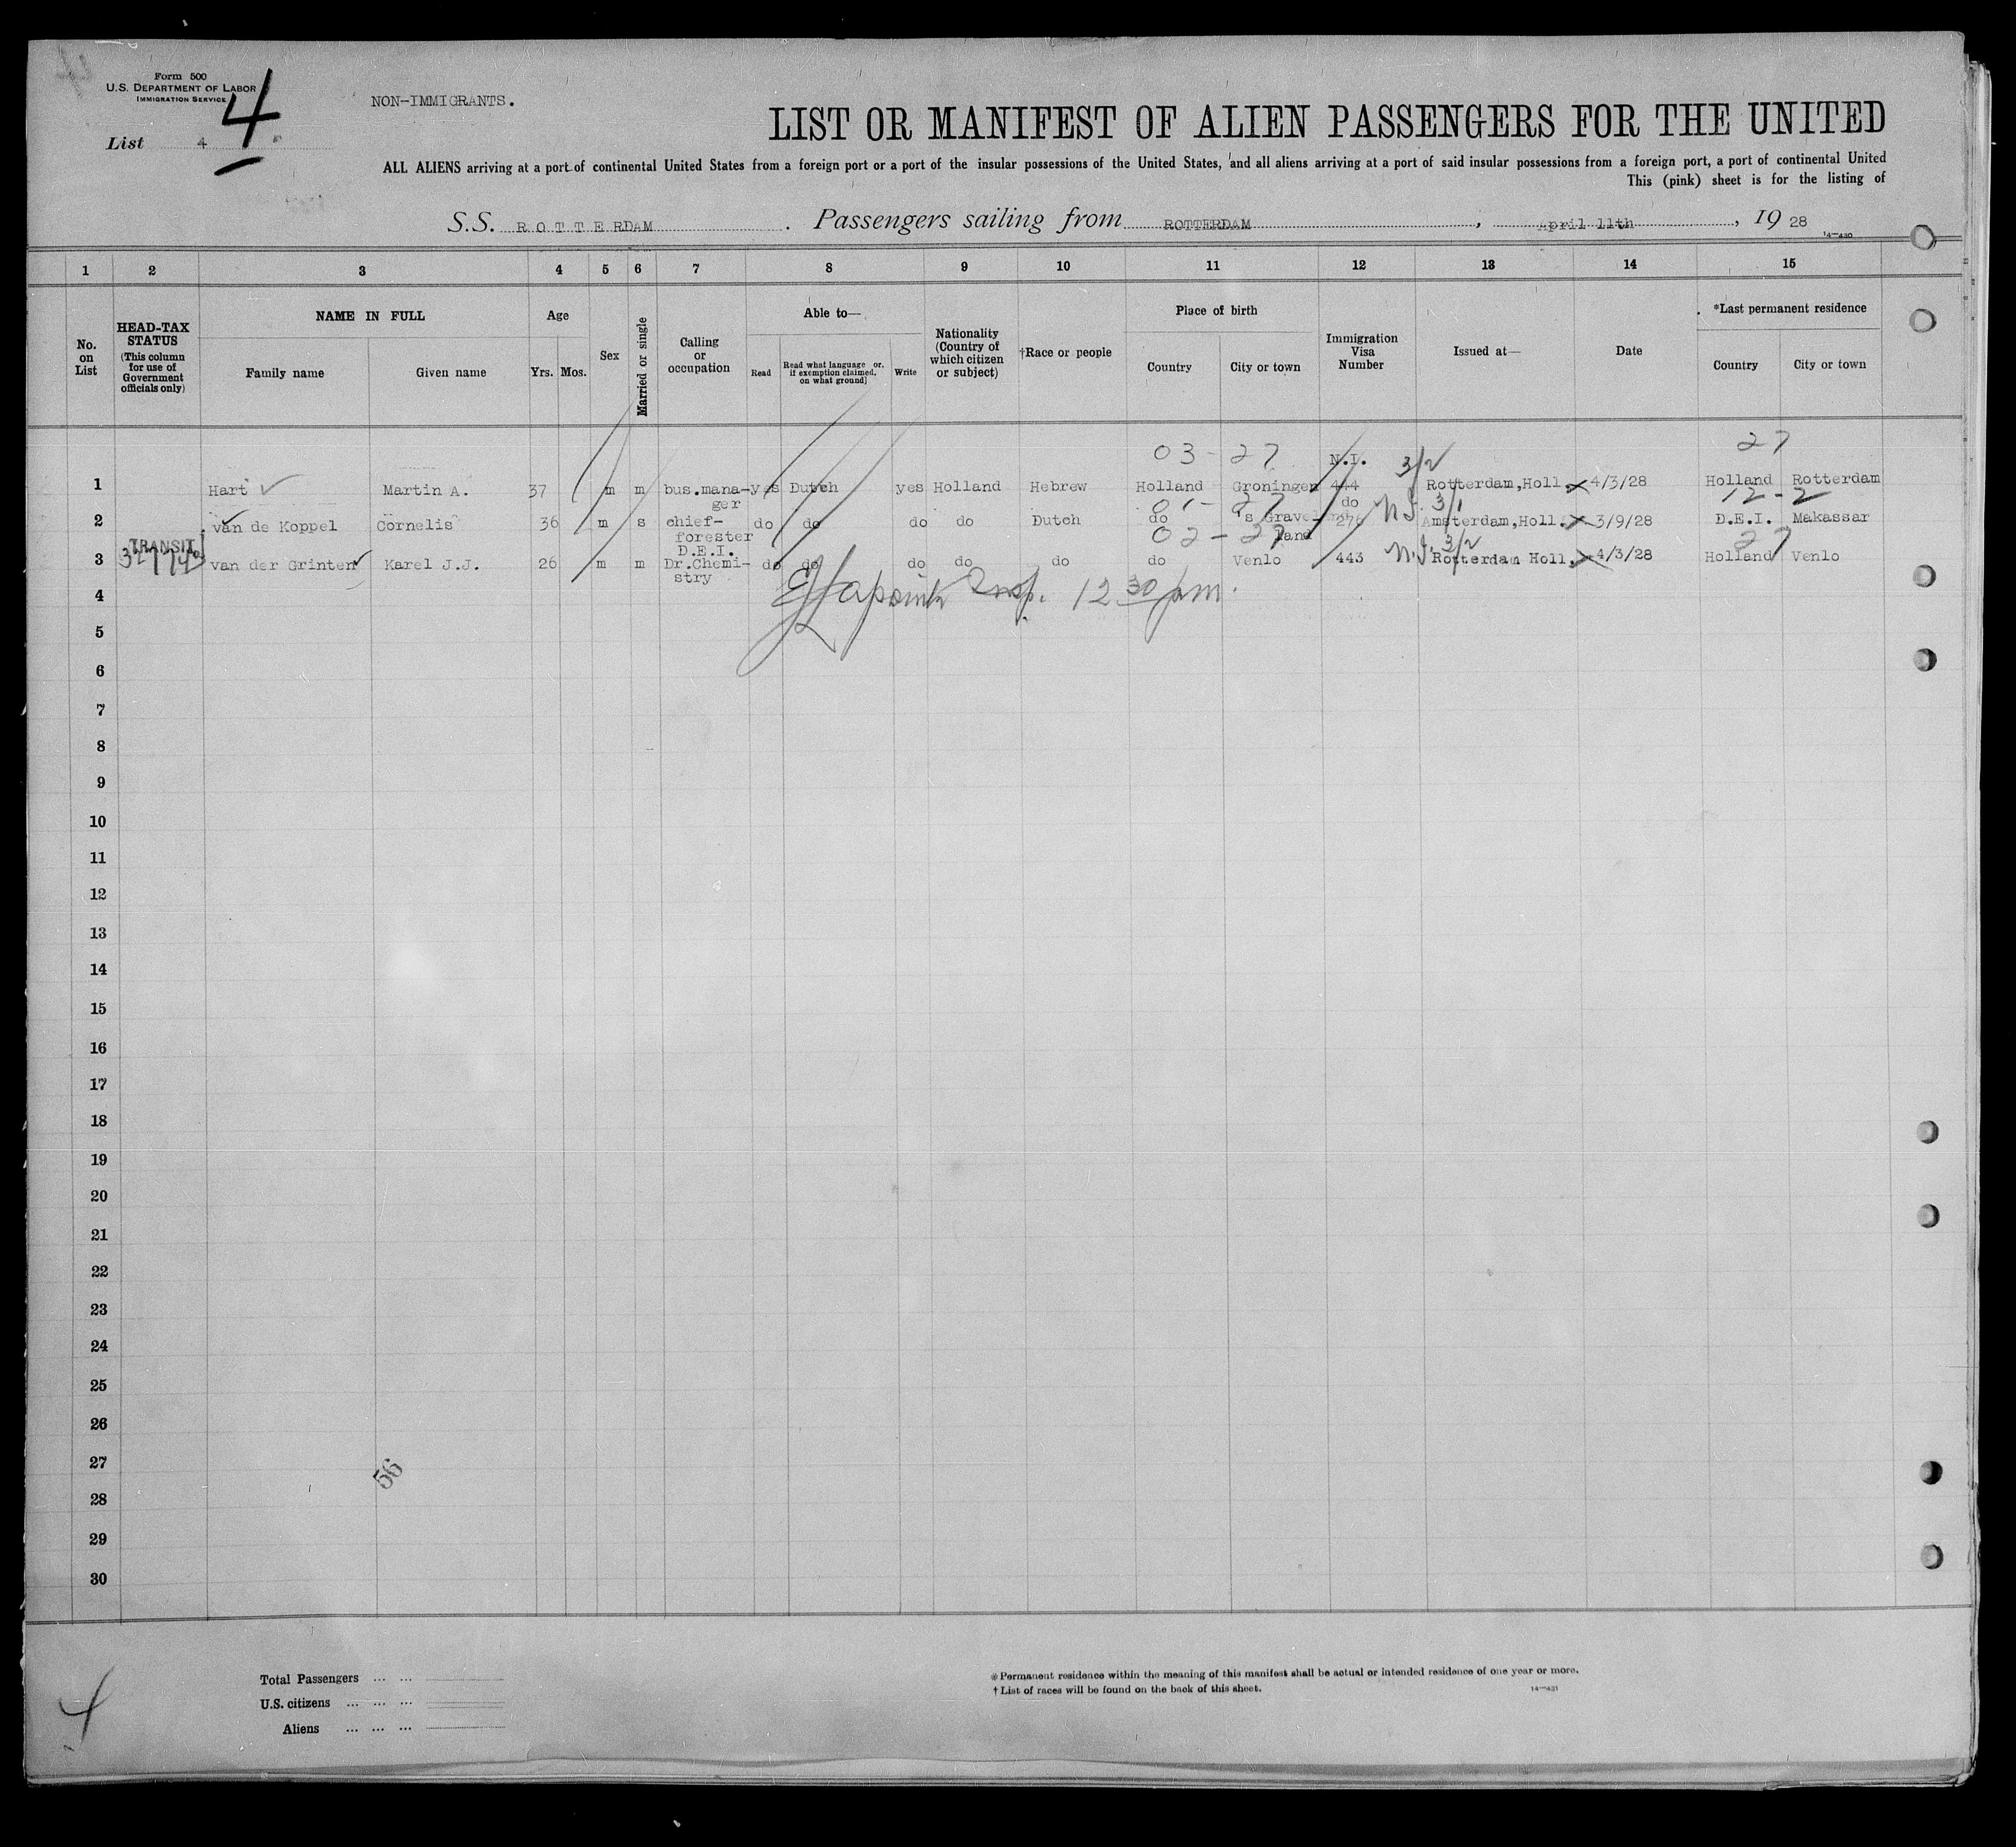 Form 500
U.S. DEPARTMENT OF LABOR
IMMIGRATION SERVICE
NON-IMMIGRANTS.
List 4
4
LIST OR MANIFEST OF ALIEN PASSENGERS FOR THE UNITED
ALL ALIENS arriving at a port of continental United States from a foreign port or a port of the insular possessions of the United States, and all aliens arriving at a port of said insular possessions from a foreign port, a port of continental United
This (pink) sheet is for the listing of
S.S. ROTTERDAM. Passengers sailing from ROTTERDAM, April 11th, 19 28
14—430
1 2 3 4 5 6 7 8 9 10 11 12 13 14 15
No. on List
HEAD-TAX STATUS (This column for use of Government officials only)
NAME IN FULL
Family name Given name
Age
Yrs. Mos.
Sex
Married or single
Calling or occupation
Able to—
Read Read what language or, if exemption claimed, on what ground] Write
Nationality (Country of which citizen or subject)
†Race or people
Place of birth
Country City or town
Immigration Visa Number
Issued at—
Date
*Last permanent residence
Country City or town
03-27 N.I. 3/2 27
1 Hart Martin A. 37 m m bus.mana-ger yes Dutch yes Holland Hebrew Holland Groningen 444 Rotterdam,Holl. 4/3/28 Holland Rotterdam
01-27 do N.I. 3/1 12-2
2 van de Koppel Cornelis 36 m s chief-forester D.E.I. do do do do Dutch do 's Graveland 276 Amsterdam,Holl. 3/9/28 D.E.I. Makassar
TRANSIT 02-27 N.I. 3/2 27
3 van der Grinten Karel J.J. 26 m m Dr.Chemi-stry do do do do do do Venlo 443 Rotterdam Holl. 4/3/28 Holland Venlo
4 Insp. 12 30 pm.
5
6
7
8
9
10
11
12
13
14
15
16
17
18
19
20
21
22
23
24
25
26
27
28
29
30
56
4
Total Passengers ... ...
U.S. citizens ... ... ...
Aliens ... ... ...
* Permanent residence within the meaning of this manifest shall be actual or intended residence of one year or more.
† List of races will be found on the back of this sheet.
14—431